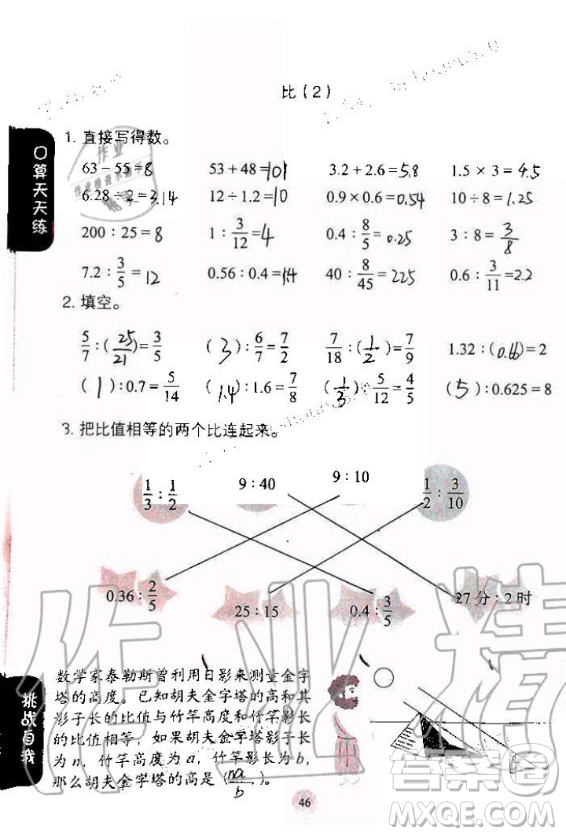 比（2）
口算天天练
1. 直接写得数。
63－55=8 53＋48=101 3.2＋2.6=5.8 1.5×3=4.5
6.28÷2=3.14 12÷1.2=10 0.9×0.6=0.54 10÷8=1.25
200：25=8 1：3/12=4 0.4：8/5=0.25 3：8=3/8
7.2：3/5=12 0.56：0.4=1.4 40：8/45=225 0.6：3/11=2.2
2. 填空。
5/7：(25/21)=3/5 (3)：6/7=7/2 7/18：(1/2)=7/9 1.32：(0.66)=2
(1)：0.7=5/14 (1.4)：1.6=7/8 (1/3)：5/12=4/5 (5)：0.625=8
3. 把比值相等的两个比连起来。
1/3：1/2 9：40 9：10 1/2：3/10
0.36：2/5 25：15 0.4：3/5 27分：2时
挑战自我
数学家泰勒斯曾利用日影来测量金字
塔的高度。已知胡夫金字塔的高和其
影子长的比值与竹竿高度和竹竿影长
的比值相等，如果胡夫金字塔影子长
为n，竹竿高度为a，竹竿影长为b，
那么胡夫金字塔的高是（na/b）。
46
作业精
作业
MXQE.COM